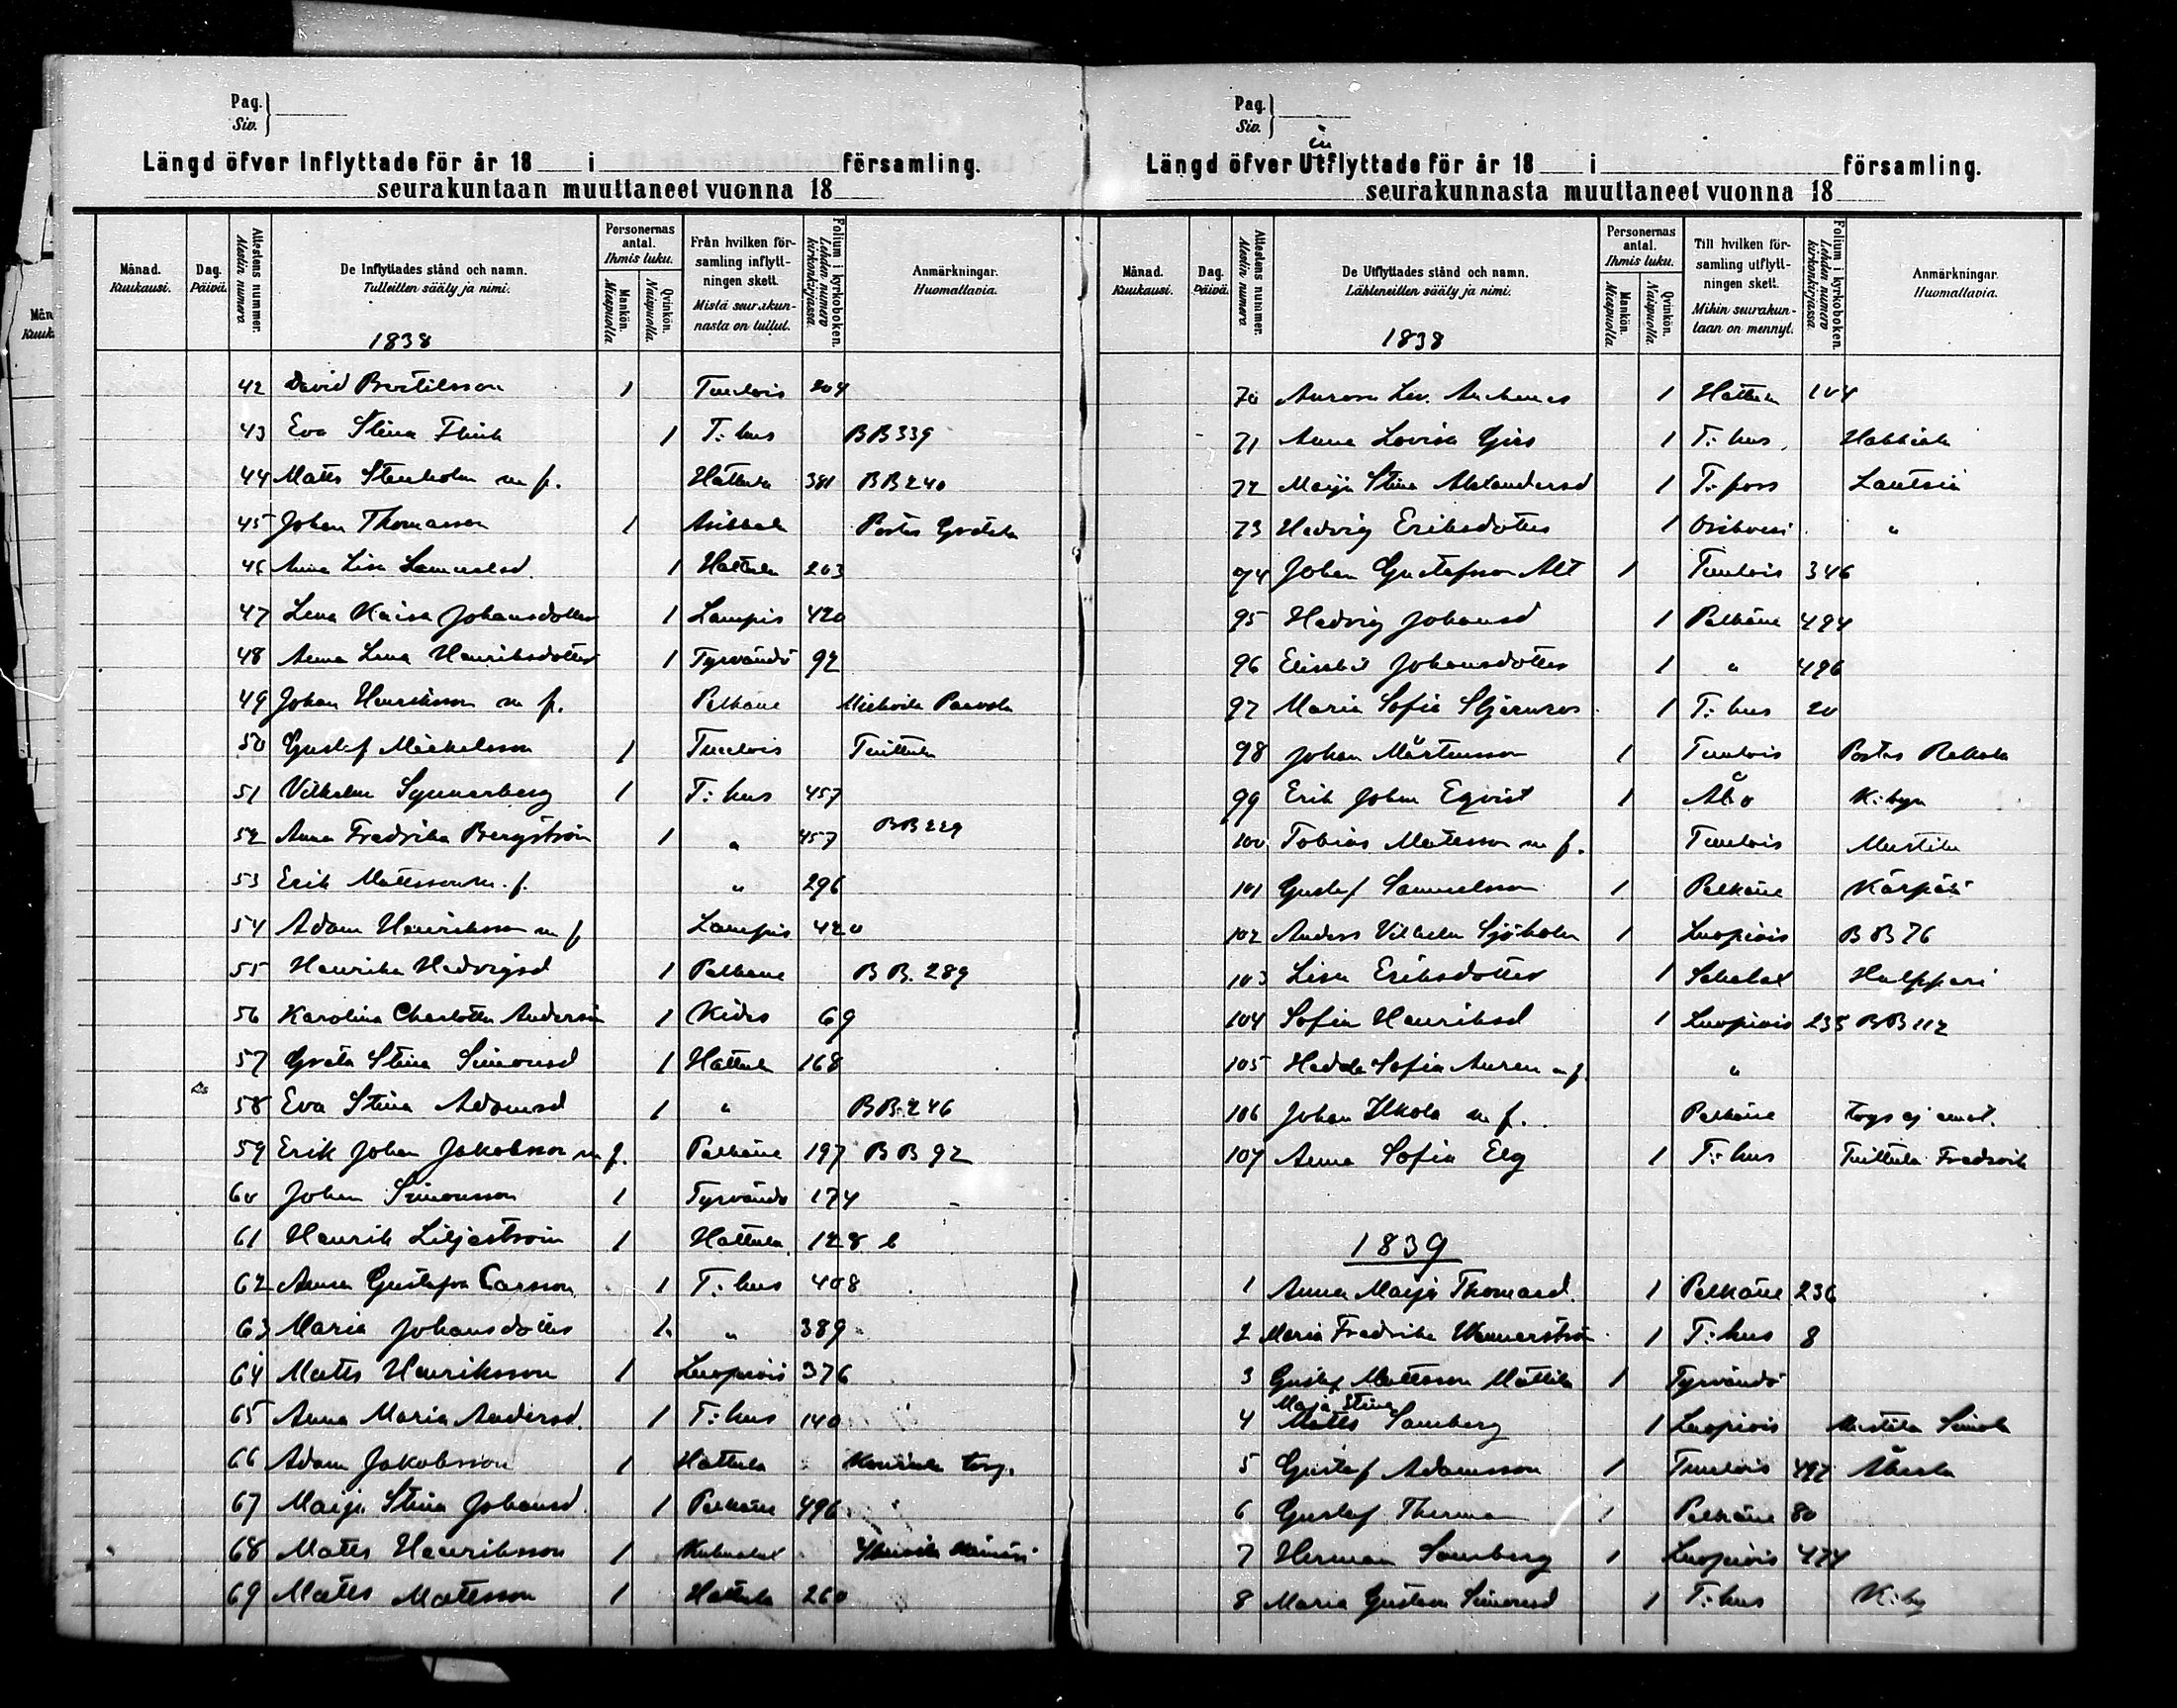 Pag.
Siv.
Längd öfver Inflyttade för år 18 i församling.
seurakuntaan muuttaneet vuonna 18
Månad. Kuukausi.
Dag. Päivä.
Attestens nummer. Alestin numero
De Inflyttades stånd och namn.
Tulleitten sääty ja nimi.
1838
Personernas antal. Ihmis luku.
Mankön. Miespuolla.
Qvinkön. Naispuolla.
Från hvilken för-
samling inflytt-
ningen skett.
Mistä seurakun-
nasta on tullut.
Folium i kyrkoboken. Lehden numero kirkonkirjassa.
Anmärkningar.
Huomattavia.
42 David Bertilsson 1 Tuulois 204
43 Eva Stina Flink 1 T:hus BB 339
44 Matts Stenholm m f. Hattula 381 BB 240
45 Johan Thomasson 1 Asikkala
46 Anna Lisa Samuelsd. 1 Hattula 203
47 Lena Kaisa Johansdotter 1 Lampis 420
48 Anna Lena Henriksdotter 1 Tyrvändö 92
49 Johan Henriksson m f. Pelkäne
50 Gustaf Mickelsson 1 Tuulois Tuittula
51 Vilhelm Synnerberg 1 T:hus 457
52 Anna Fredrika Bergström 1 " 457 BB 229
53 Erik Mattsson m. f. " 296
54 Adam Henriksson m f Lampis 420
55 Henrika Hedvigsd 1 Pelkäne BB. 289
56 Karolina Charlotta 1 69
57 Greta Stina Simonsd 1 Hattula 168
58 Eva Stina Adamsd 1 " BB. 246
59 Erik Johan Jakobsson m f. Pelkäne 197 BB 92
60 Johan Simonsson 1 Tyrvändö 174
61 Henrik Liljeström 1 Hattula 128 b
62 Anna Gustafva Carsson 1 T:hus 408
63 Maria Johansdotter 1 " 389
64 Matts Henriksson 1 Luopiois 376
65 Anna Maria Andersd. 1 T:hus 140
66 Adam Jakobsson 1 Hattula torp.
67 Maija Stina Johansd. 1 Pelkäne 496
68 Matts Henriksson 1 Kuhmalax
69 Matts Mattsson 1 Hattula 260
Pag.
Siv.
in
Längd öfver Utflyttade för år 18 i församling.
seurakunnasta muuttaneet vuonna 18
Månad. Kuukausi.
Dag. Päivä.
Attestens nummer. Alestin numero
De Utflyttades stånd och namn.
Lähteneitten sääty ja nimi.
1838
Personernas antal. Ihmis luku.
Mankön. Miespuolla.
Qvinkön. Naispuolla.
Till hvilken för-
samling utflytt-
ningen skett.
Mihin seurakun-
taan on mennyt.
Folium i kyrkoboken. Lehden numero kirkonkirjassa.
Anmärkningar.
Huomattavia.
70 Aurora Lov. 1 Hattula 104
71 Anna Lovisa 1 T:hus
72 Maija Stina Alexandersd 1 T:fors Lautsia
73 Hedvig Eriksdotter 1 Orihvesi "
94 Johan Gustafsson Alt 1 Tuulois 346
95 Hedvig Johansd 1 Pelkäne 494
96 Elisabet Johansdotter 1 " 496
97 Maria Sofia Stjernros 1 T:hus 20
98 Johan Mårtensson 1 Tuulois
99 Erik Johan Eqvist 1 Åbo K:byn
100 Tobias Matsson m f. Tuulois Mustila
101 Gustaf Samuelsson 1 Pelkäne
102 Anders Vilhelm Sjöholm 1 Luopiois BB 76
103 Lisa Eriksdotter 1
104 Sofia Henriksd 1 Luopiois 235 BB 112
105 Hedda Sofia Auren m f. "
106 Johan Ilkola m f. Pelkäne togs ej emot.
107 Anna Sofia Elg 1 T:hus Tuittula Fredrik
1839
1 Anna Maija Thomasd. 1 Pelkäne 236
2 Maria Fredrika Wennerström 1 T:hus 8
3 Gustaf Mattsson Mattila 1 Tyrvändö
Maja Stina
4 Matts Samberg 1 Luopiois Mustila Simola
5 Gustaf Adamsson 1 Tuulois 497
6 Gustaf Therman 1 Pelkäne 80
7 Herman Samberg 1 Luopiois 474
8 Maria Gustava Simonsd 1 T:hus K:by